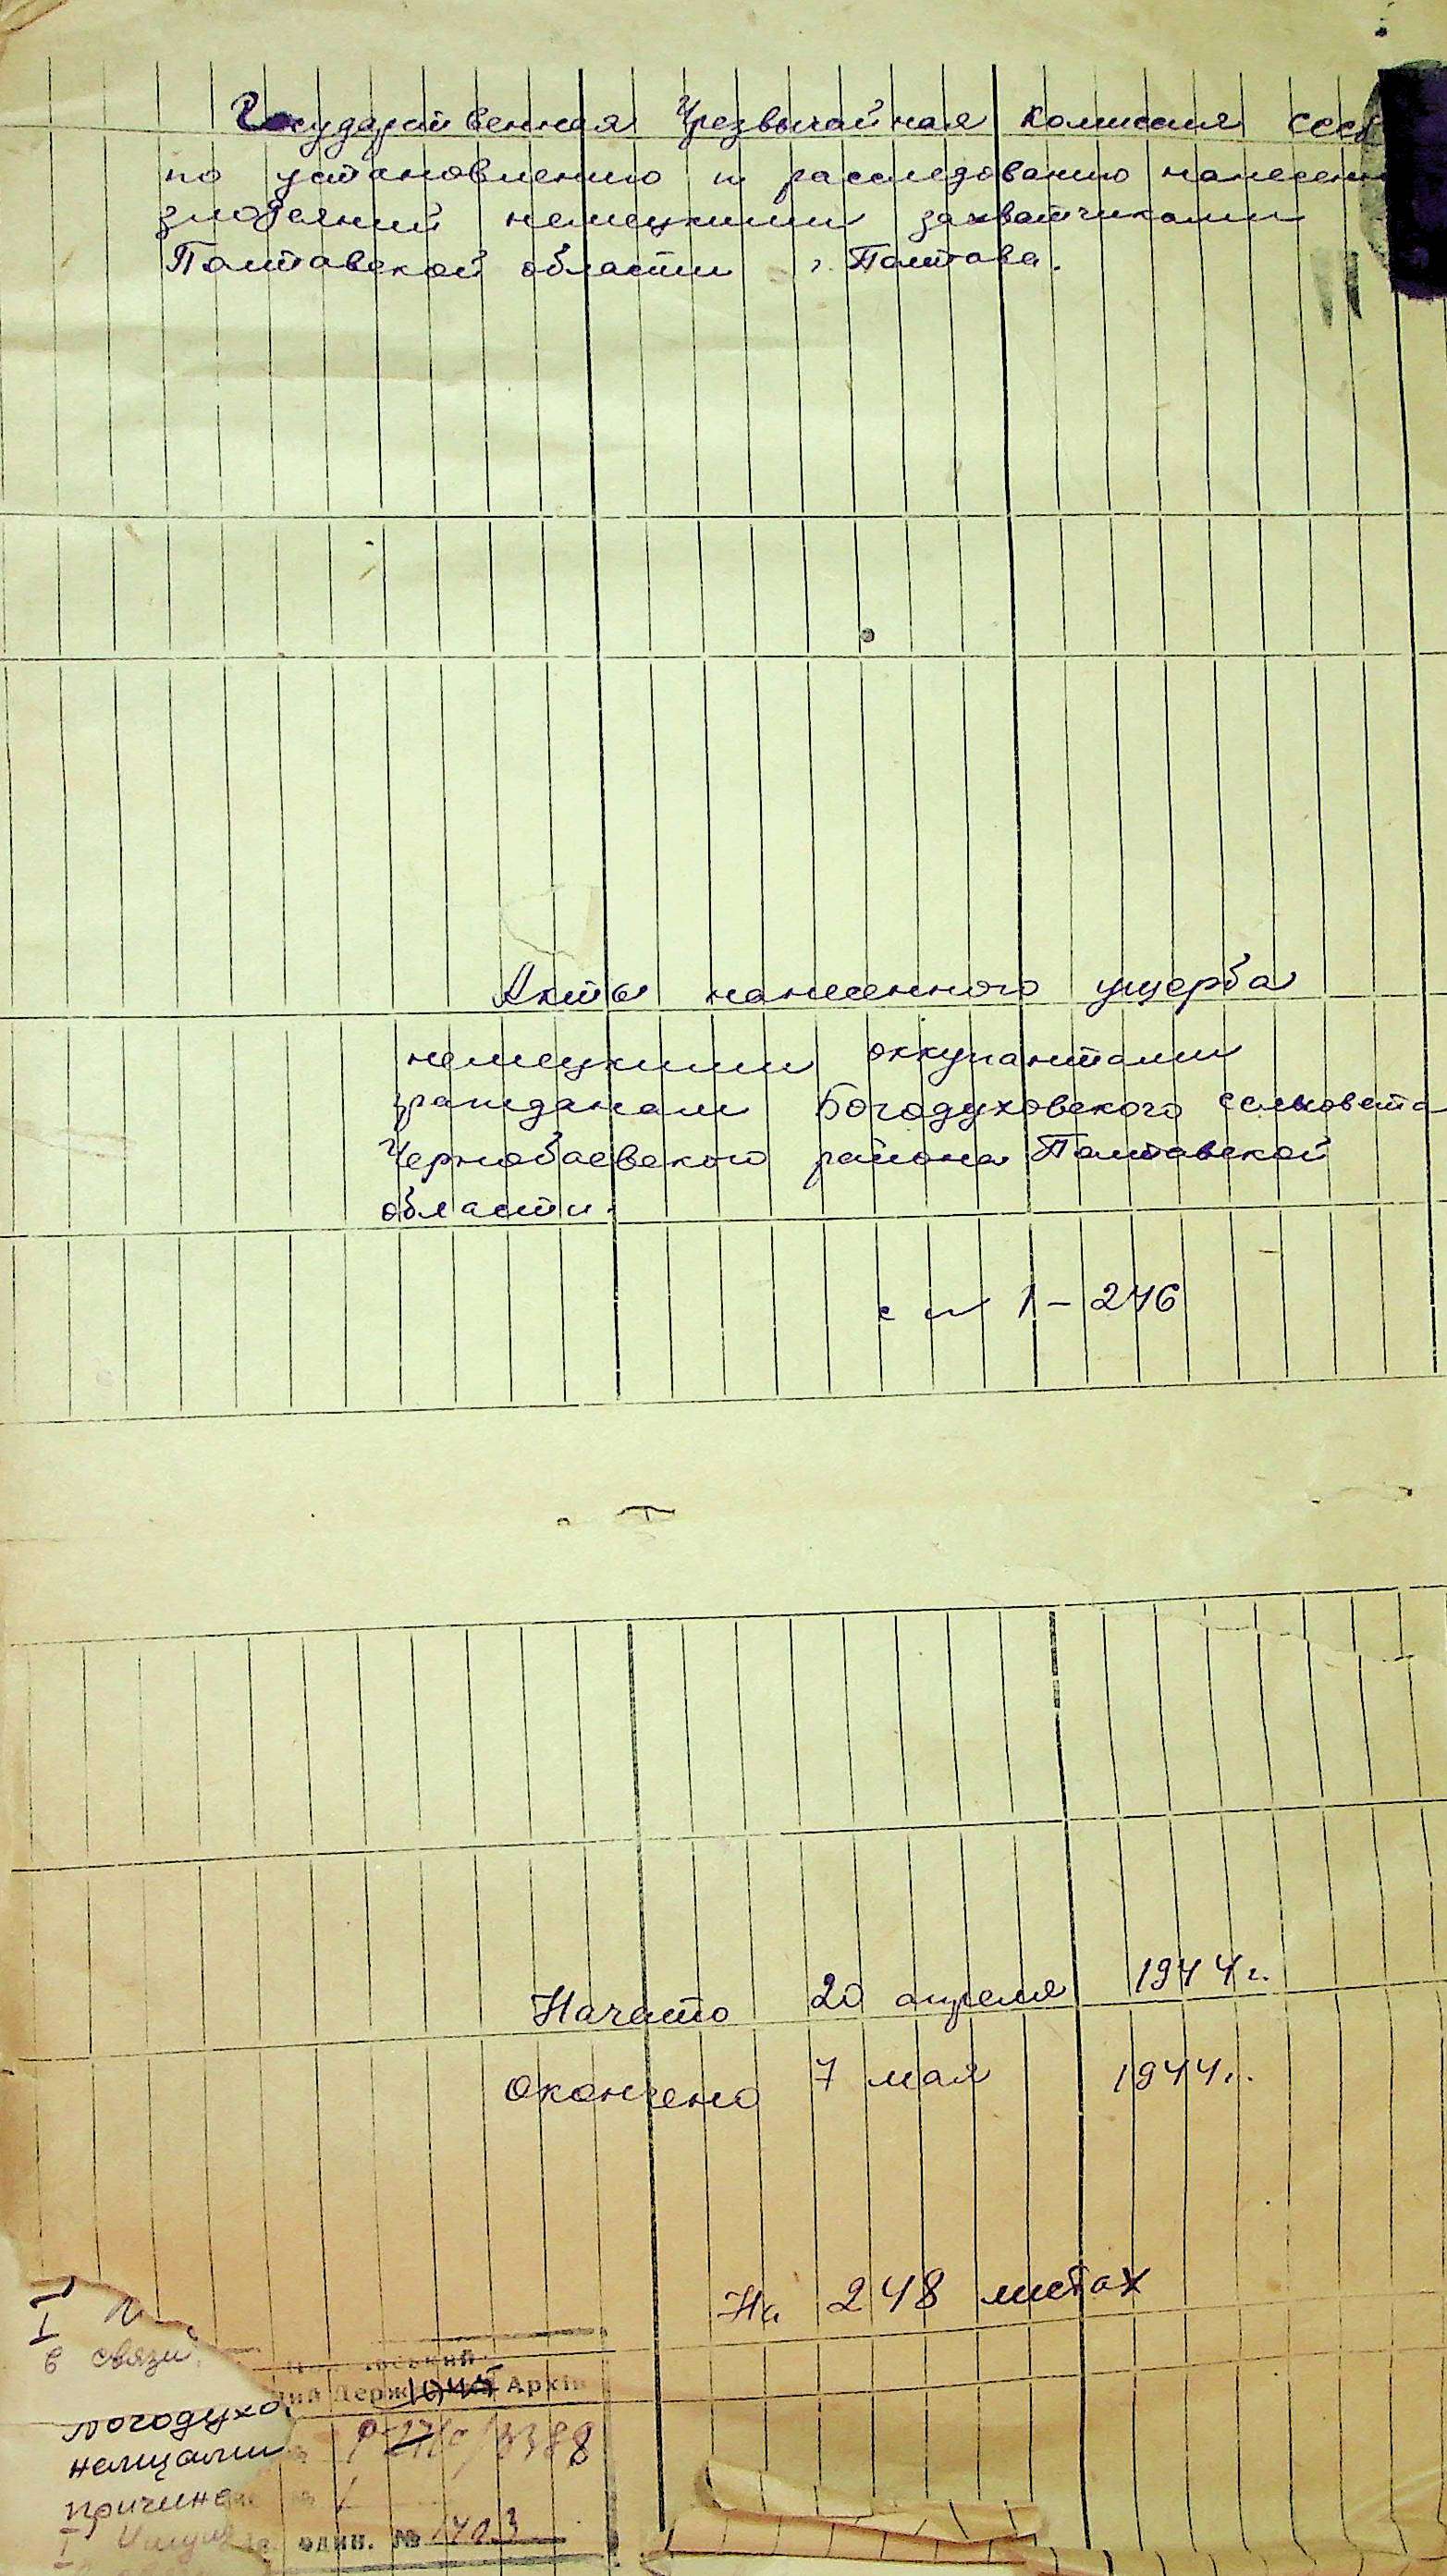 Государственная Чрезвычайная Комиссия СССР
по установлению и расследованию нанесен
злодеяний немецкими захватчиками
Полтавской области г. Полтава.
Акты нанесенного ущерба
немецкими оккупантами
гражданам Богодуховского сельсовета
Чернобаевского района Полтавской
области.
1 - 246
Начато 20 апреля 1944 г.
Окончено 7 мая 1944 г.
На 248 листах
в связи
Держ Архів
один. №